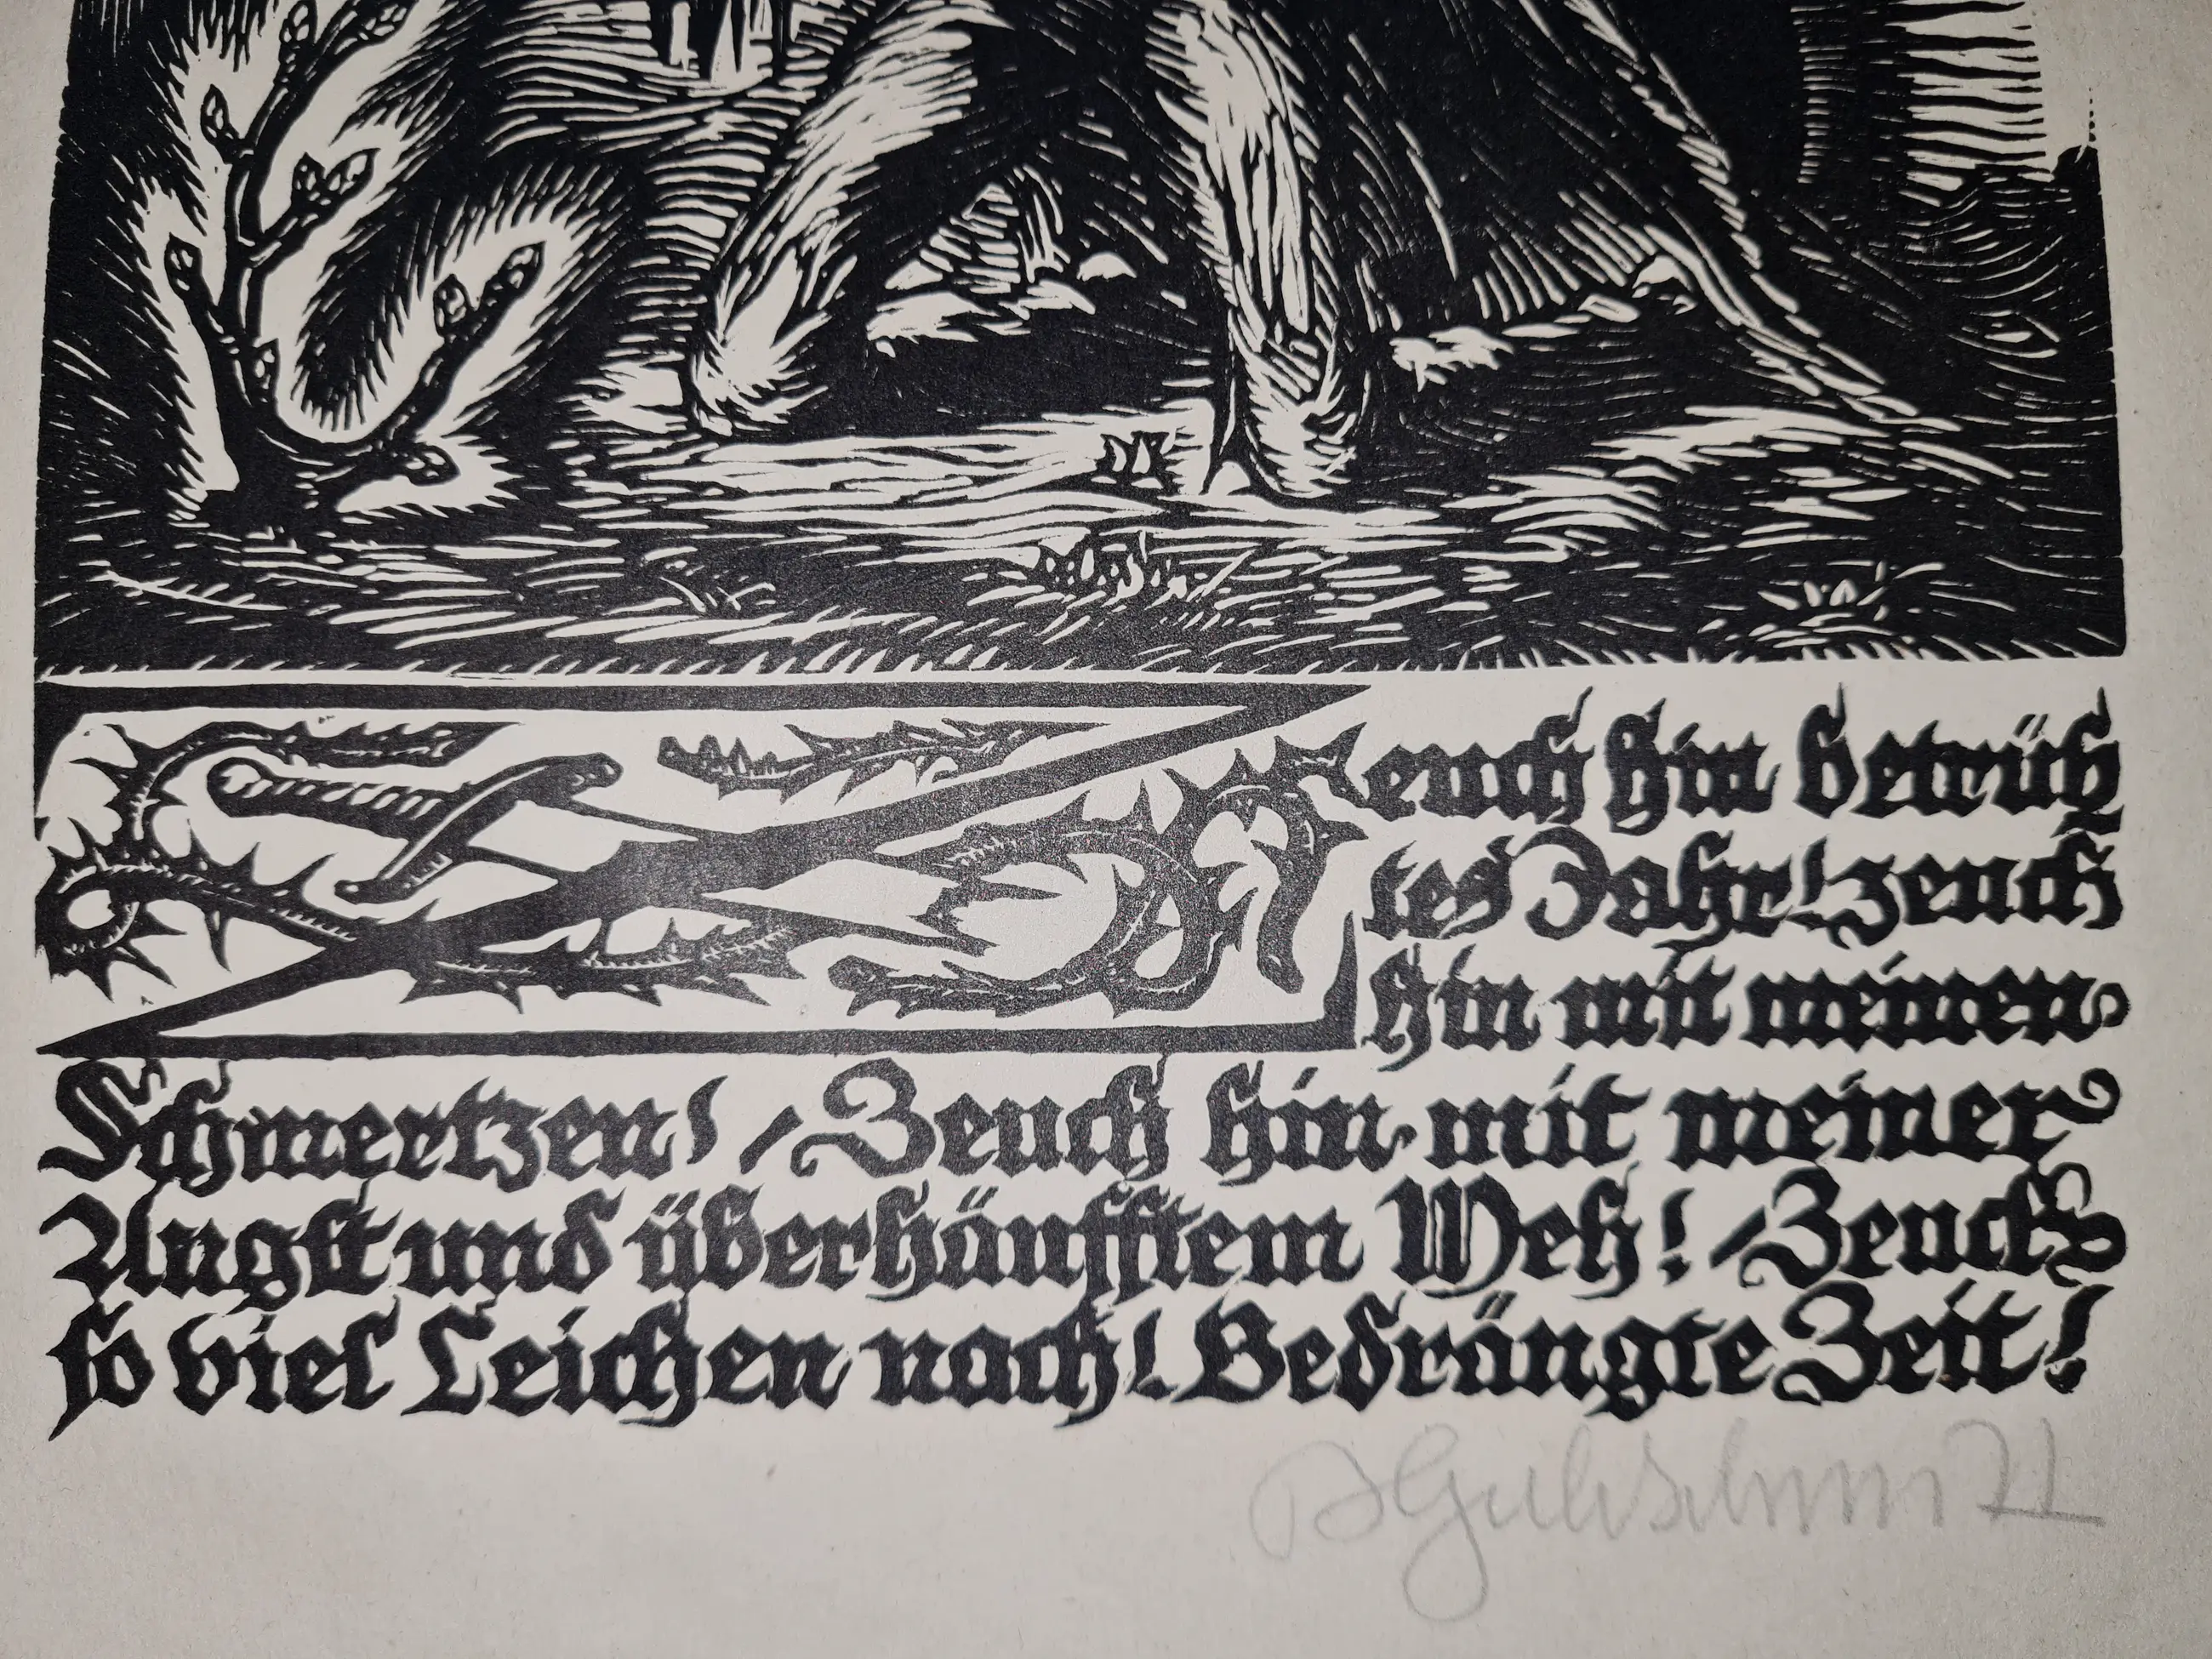 Zeuch hin betrüb
tes Jahr! zeuch
hin mit meinen
Schmertzen! / Zeuch hin mit meiner
Angst und überhäufftem Weh! / Zeuch
so viel Leichen nach! Bedrängte Zeit!
71